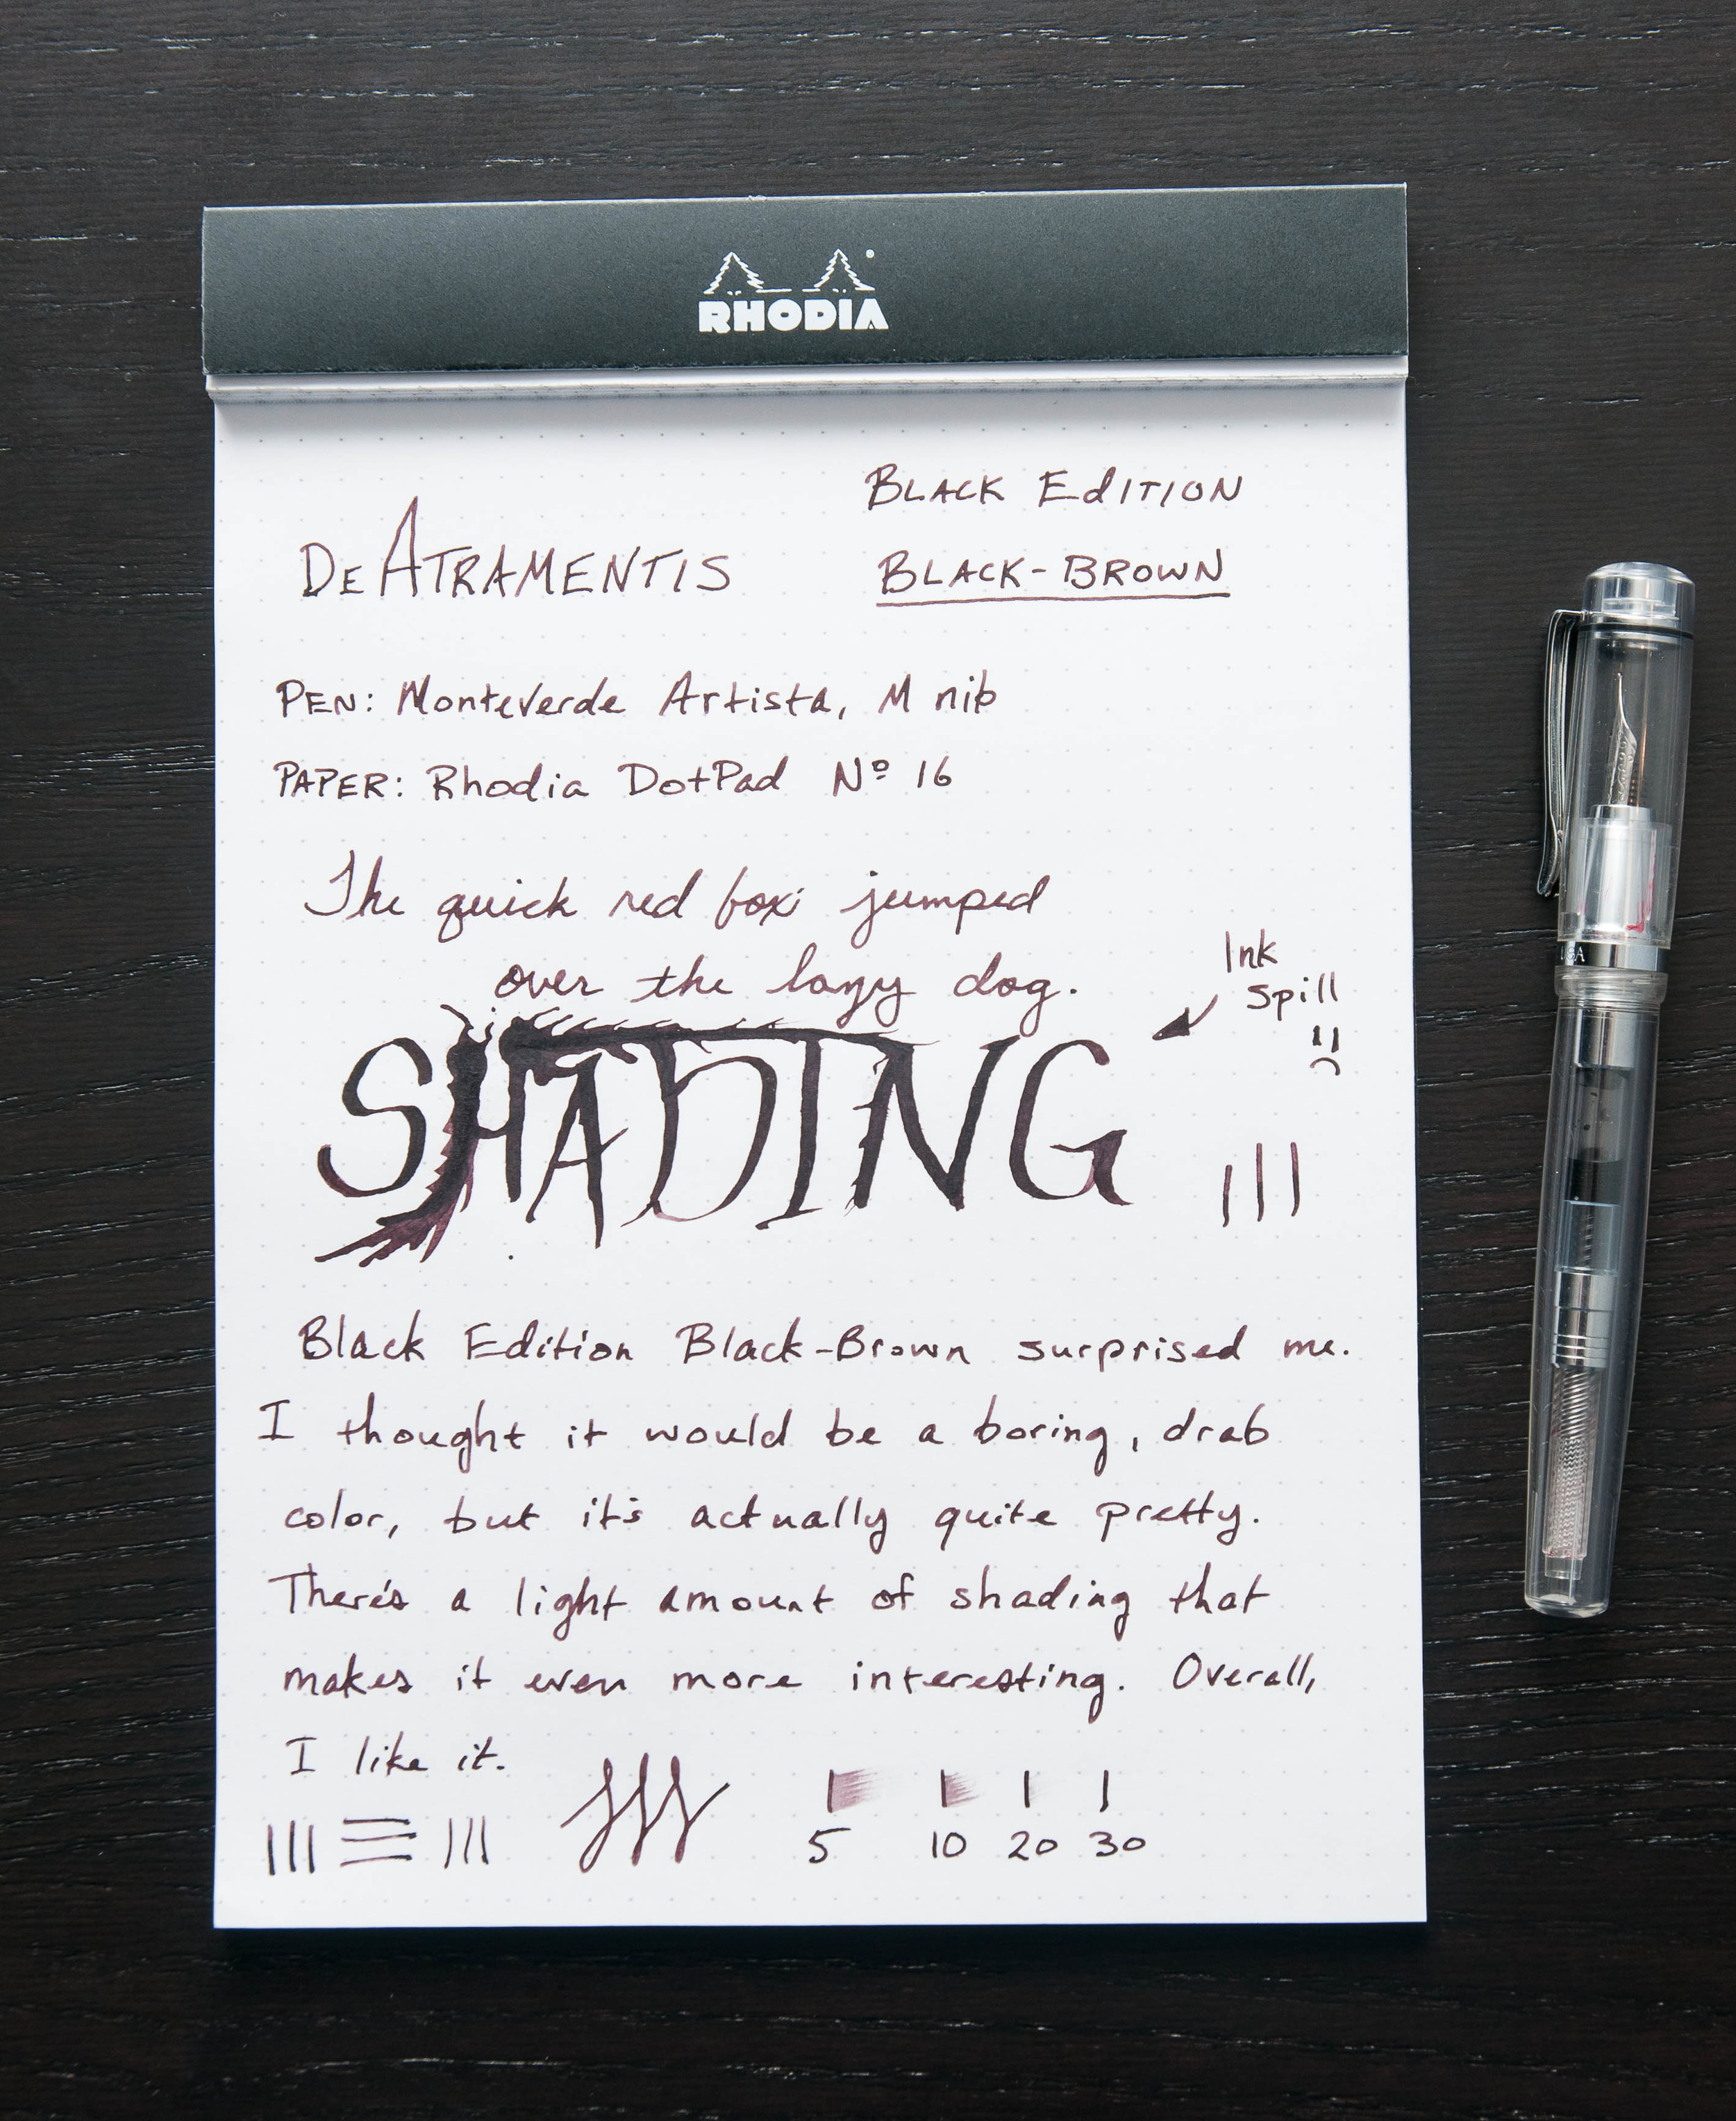 RHODIA
BLACK EdITION
DE ATRAMENTIS
BLACK-BROWN
PEN: Monteverde Artista, M nib
PAPER: Rhodia DotPad Nº 16
The quick red fox jumped
over the lazy dog.
Ink
Spill
SHADING
Black Edition Black-Brown surprised me.
I thought it would be a boring, drab
color, but it's actually quite pretty.
There's a light amount of shading that
makes it even more interesting. Overall,
I like it.
5 10 20 30